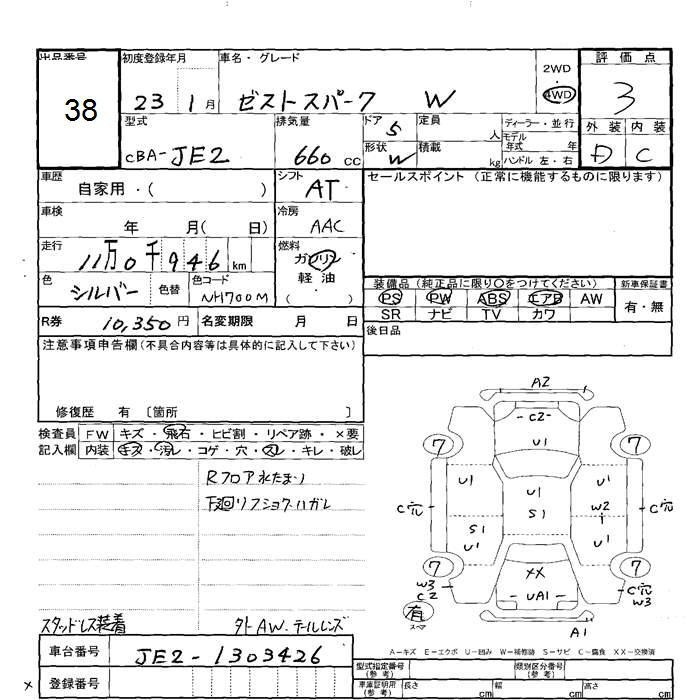 出品番号 38
初度登録年月 23 1月
車名・グレード ゼストスパーク W
2WD・4WD
評価点 3
型式 CBA-JE2
排気量 660 CC
ドア 5
形状 W
定員 人
積載 kg
ディーラー・並行
モデル年式 年
ハンドル 左・右
外装 D
内装 C
車歴 自家用・( )
シフト AT
セールスポイント (正常に機能するものに限ります)
車検 年 月( 日)
冷房 AAC
走行 11万0千946 km
燃料 ガソリン・軽油・( )
色 シルバー
色替
色コード NH700M
装備品 (純正品に限り○をつけてください)
PS PW ABS エアB AW
SR ナビ TV カワ
新車保証書 有・無
R券 10,350円
名変期限 月 日
後日品
注意事項申告欄(不具合内容等は具体的に記入して下さい)
修復歴 有 〔箇所 〕
検査員記入欄
FW キズ・飛石・ヒビ割・リペア跡・×要
内装 キズ・汚レ・コゲ・穴・スレ・キレ・破レ
Rフロア水たまり
下廻リフショク・ハガレ
スタッドレス装着
外AW.テールレンズ
A2
C2
U1
7 7
U1 U1 U1
C穴 S1 W2 C穴
S1
U1 U1
7 XX 7
W3 C2 UA1 C穴 W3
有 スペア
A1
A−キズ E−エクボ U−凹み W−補修跡 S−サビ C−腐食 XX−交換済
車台番号 JE2-1303426
登録番号
型式指定番号(参考)
類別区分番号(参考)
車庫証明用(参考) 長さ cm 幅 cm 高さ cm
×